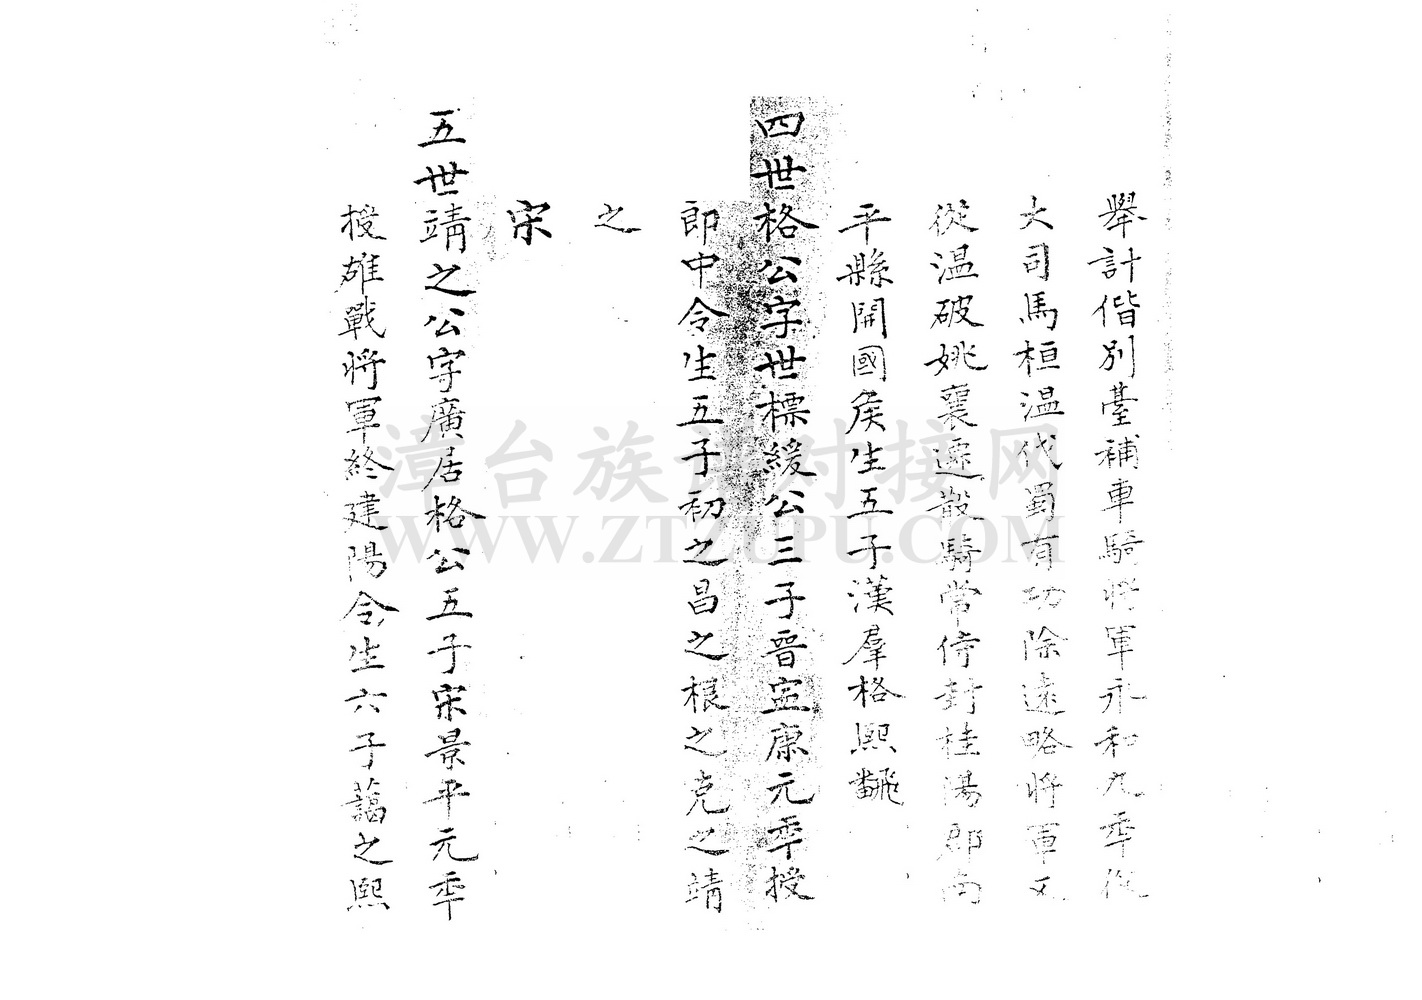 舉計偕別臺補車騎將軍永和九年從
大司馬桓温代蜀有功除遠略將軍又
從温破姚襄遷散騎常侍封桂陽郡南
平縣開國矦生五子漢羣格熙飜
四世格公字世標緩公三子晉寍康元秊授
郎中令生五子初之昌之根之克之靖
之
宋
五世靖之公字廣居格公五子宋景平元秊
授雄戰將軍終建陽令生六子藹之熙
漳台族谱对接网
WWW.ZTZUPU.COM